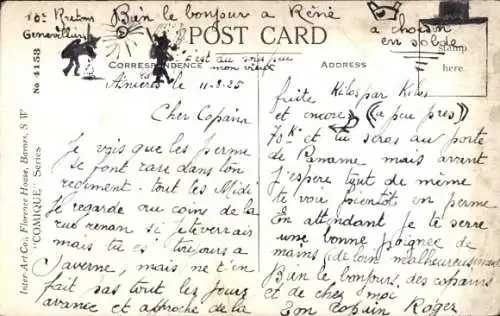 10e Kretons
Bien le bonjour a Réné
Genevilliers
POST CARD
a choisir
en solde
c'est au
mon vieux
CORRESPONDENCE
ADDRESS
stamp
here.
Asnières le 11-8-25
Cher Copain
Je vois que les perme
se font rare dans ton
regiment. tout les Midi
Je regarde au coins de la
rue renan si
mais tu es toujours a
Saverne, mais ne t'en
fait pas tout les jours
avance et approche de la
fuite Kilos par Kilos
et encore (a peu pres)
70K et tu seras au porte
de Paname mais avant
J'espère tout de même
te voir bientôt en perme
En attendant je te serre
une bonne poignée de
mains (de loin malheureusement
Bien le bonjours des copains
et de chez moi
Ton copain Roger
Inter-Art Co., Florence House, Barnes, S W
"COMIQUE" Series
No 4153